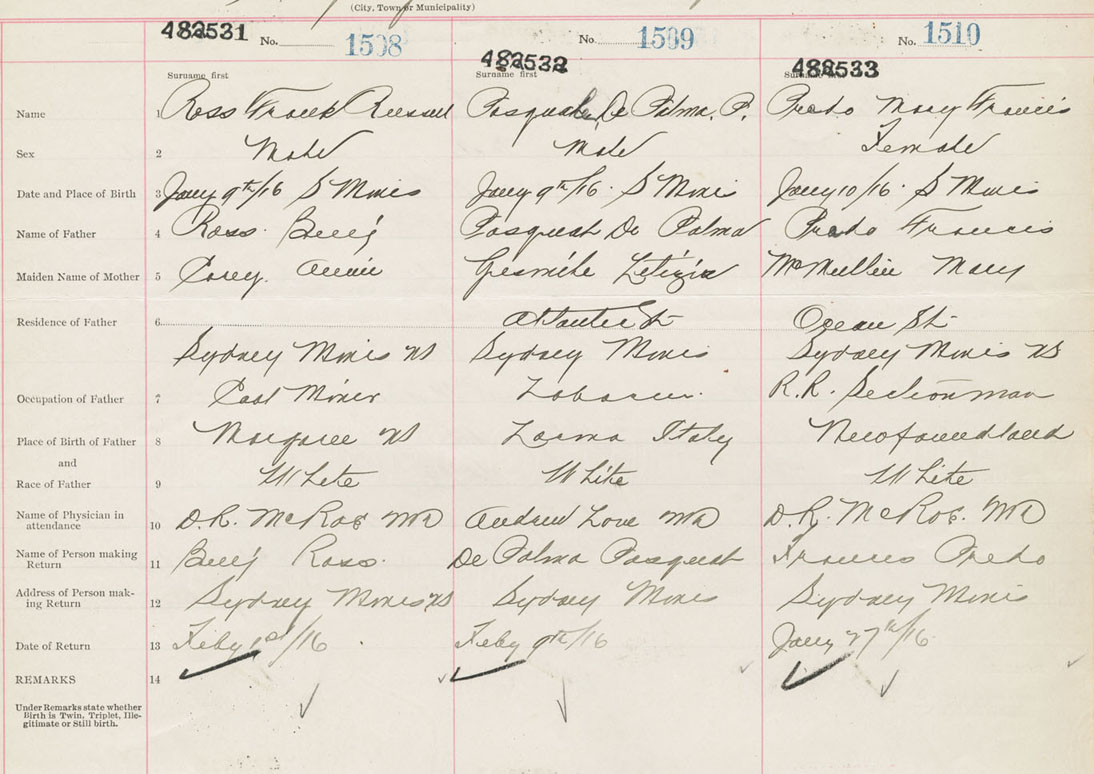 (City, Town or Municipality)
482531 482532 482533
No. 1508 No. 1509 No. 1510
Surname first Surname first Surname first
Name 1 Ross Frank Russell Pasquale De Palma, P. Predo Mary Francis
Sex 2 Male Male Female
Date and Place of Birth 3 Jany 9th/16 S Mines Jany 9th/16. S Mines Jany 10/16. S Mines
Name of Father 4 Ross. Benj Pasquale De Palma Predo Francis
Maiden Name of Mother 5 Corey. Annie Letizia McMullin Mary
Residence of Father 6 Atlantic St Ocean St
Sydney Mines NS Sydney Mines Sydney Mines NS
Occupation of Father 7 Coal Miner Laborer. R.R. Sectionman
Place of Birth of Father 8 Margaree NS Italy Newfoundland
and
Race of Father 9 White White White
Name of Physician in
attendance 10 D.R. McRae MD Andrew Love MD D.R. McRae. MD
Name of Person making
Return 11 Benj Ross. De Palma Pasquale Francis Predo
Address of Person mak-
ing Return 12 Sydney Mines NS Sydney Mines Sydney Mines
Date of Return 13 Feby 1st/16 Feby 9th/16 Jany 27th/16
REMARKS 14
Under Remarks state whether
Birth is Twin, Triplet, Ille-
gitimate or Still birth.